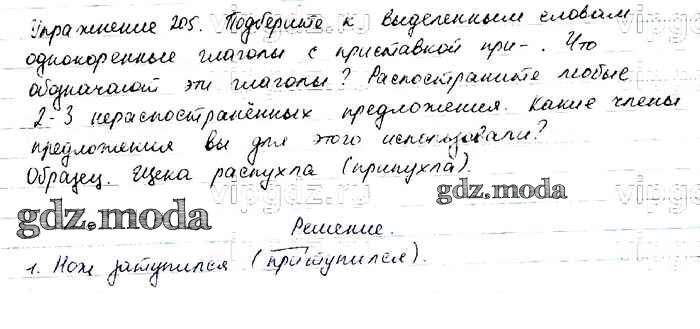 Упражнение 205. Подберите к выделенным словам
однокоренные глаголы с приставкой при- . Что
обозначают эти глаголы? Распостраните любые
2-3 нераспостранённых предложения. Какие члены
предложения вы для этого использовали?
Образец. Щека распухла (припухла).
gdz.moda
gdz.moda
Решение.
1. Нож затупился (притупился).